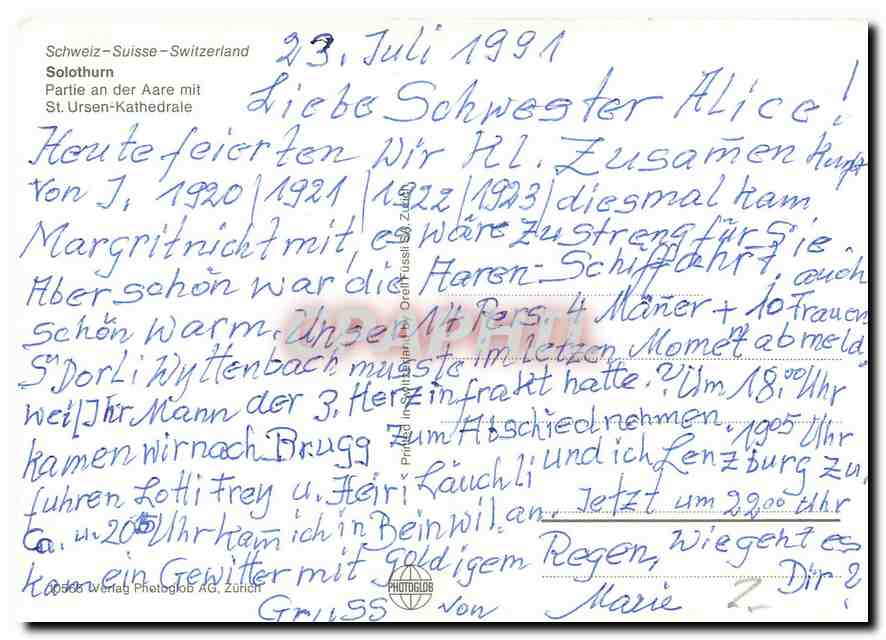 Schweiz–Suisse–Switzerland
Solothurn
Partie an der Aare mit
St. Ursen-Kathedrale
23. Juli 1991
Liebe Schwester Alice!
Heute feierten wir Kl. Zusam̄enkunft
von J. 1920/1921/1922/1923/diesmal kam
Margrit nicht mit, es wäre zu streng für Sie.
Aber schön war die Aaren-Schiffahrt, auch
schön warm. Unser 14 Pers. 4 Mäner + 10 Frauen
S'Dorli Wyttenbach musste im letzen Moment abmeld.
weil Ihr Mann der 3. Herzinfrakt hatte.? Um 18.00 Uhr
kamen wir nach Brugg zum Abschiednehmen. 1905 Uhr
fuhren Lotti Frey u. Heiri Läuchli und ich Lenzburg zu.
Ca. 2005 Uhr kam ich in Beinwil an. Jetzt um 2200 Uhr
kam ein Gewitter mit goldigem Regen, Wie geht es
Dir?
Gruss von Marie
2.-
Printed in Switzerland by Orell Füssli SA, Zürich
Verlag Photoglob AG, Zürich
PHOTOGLOB